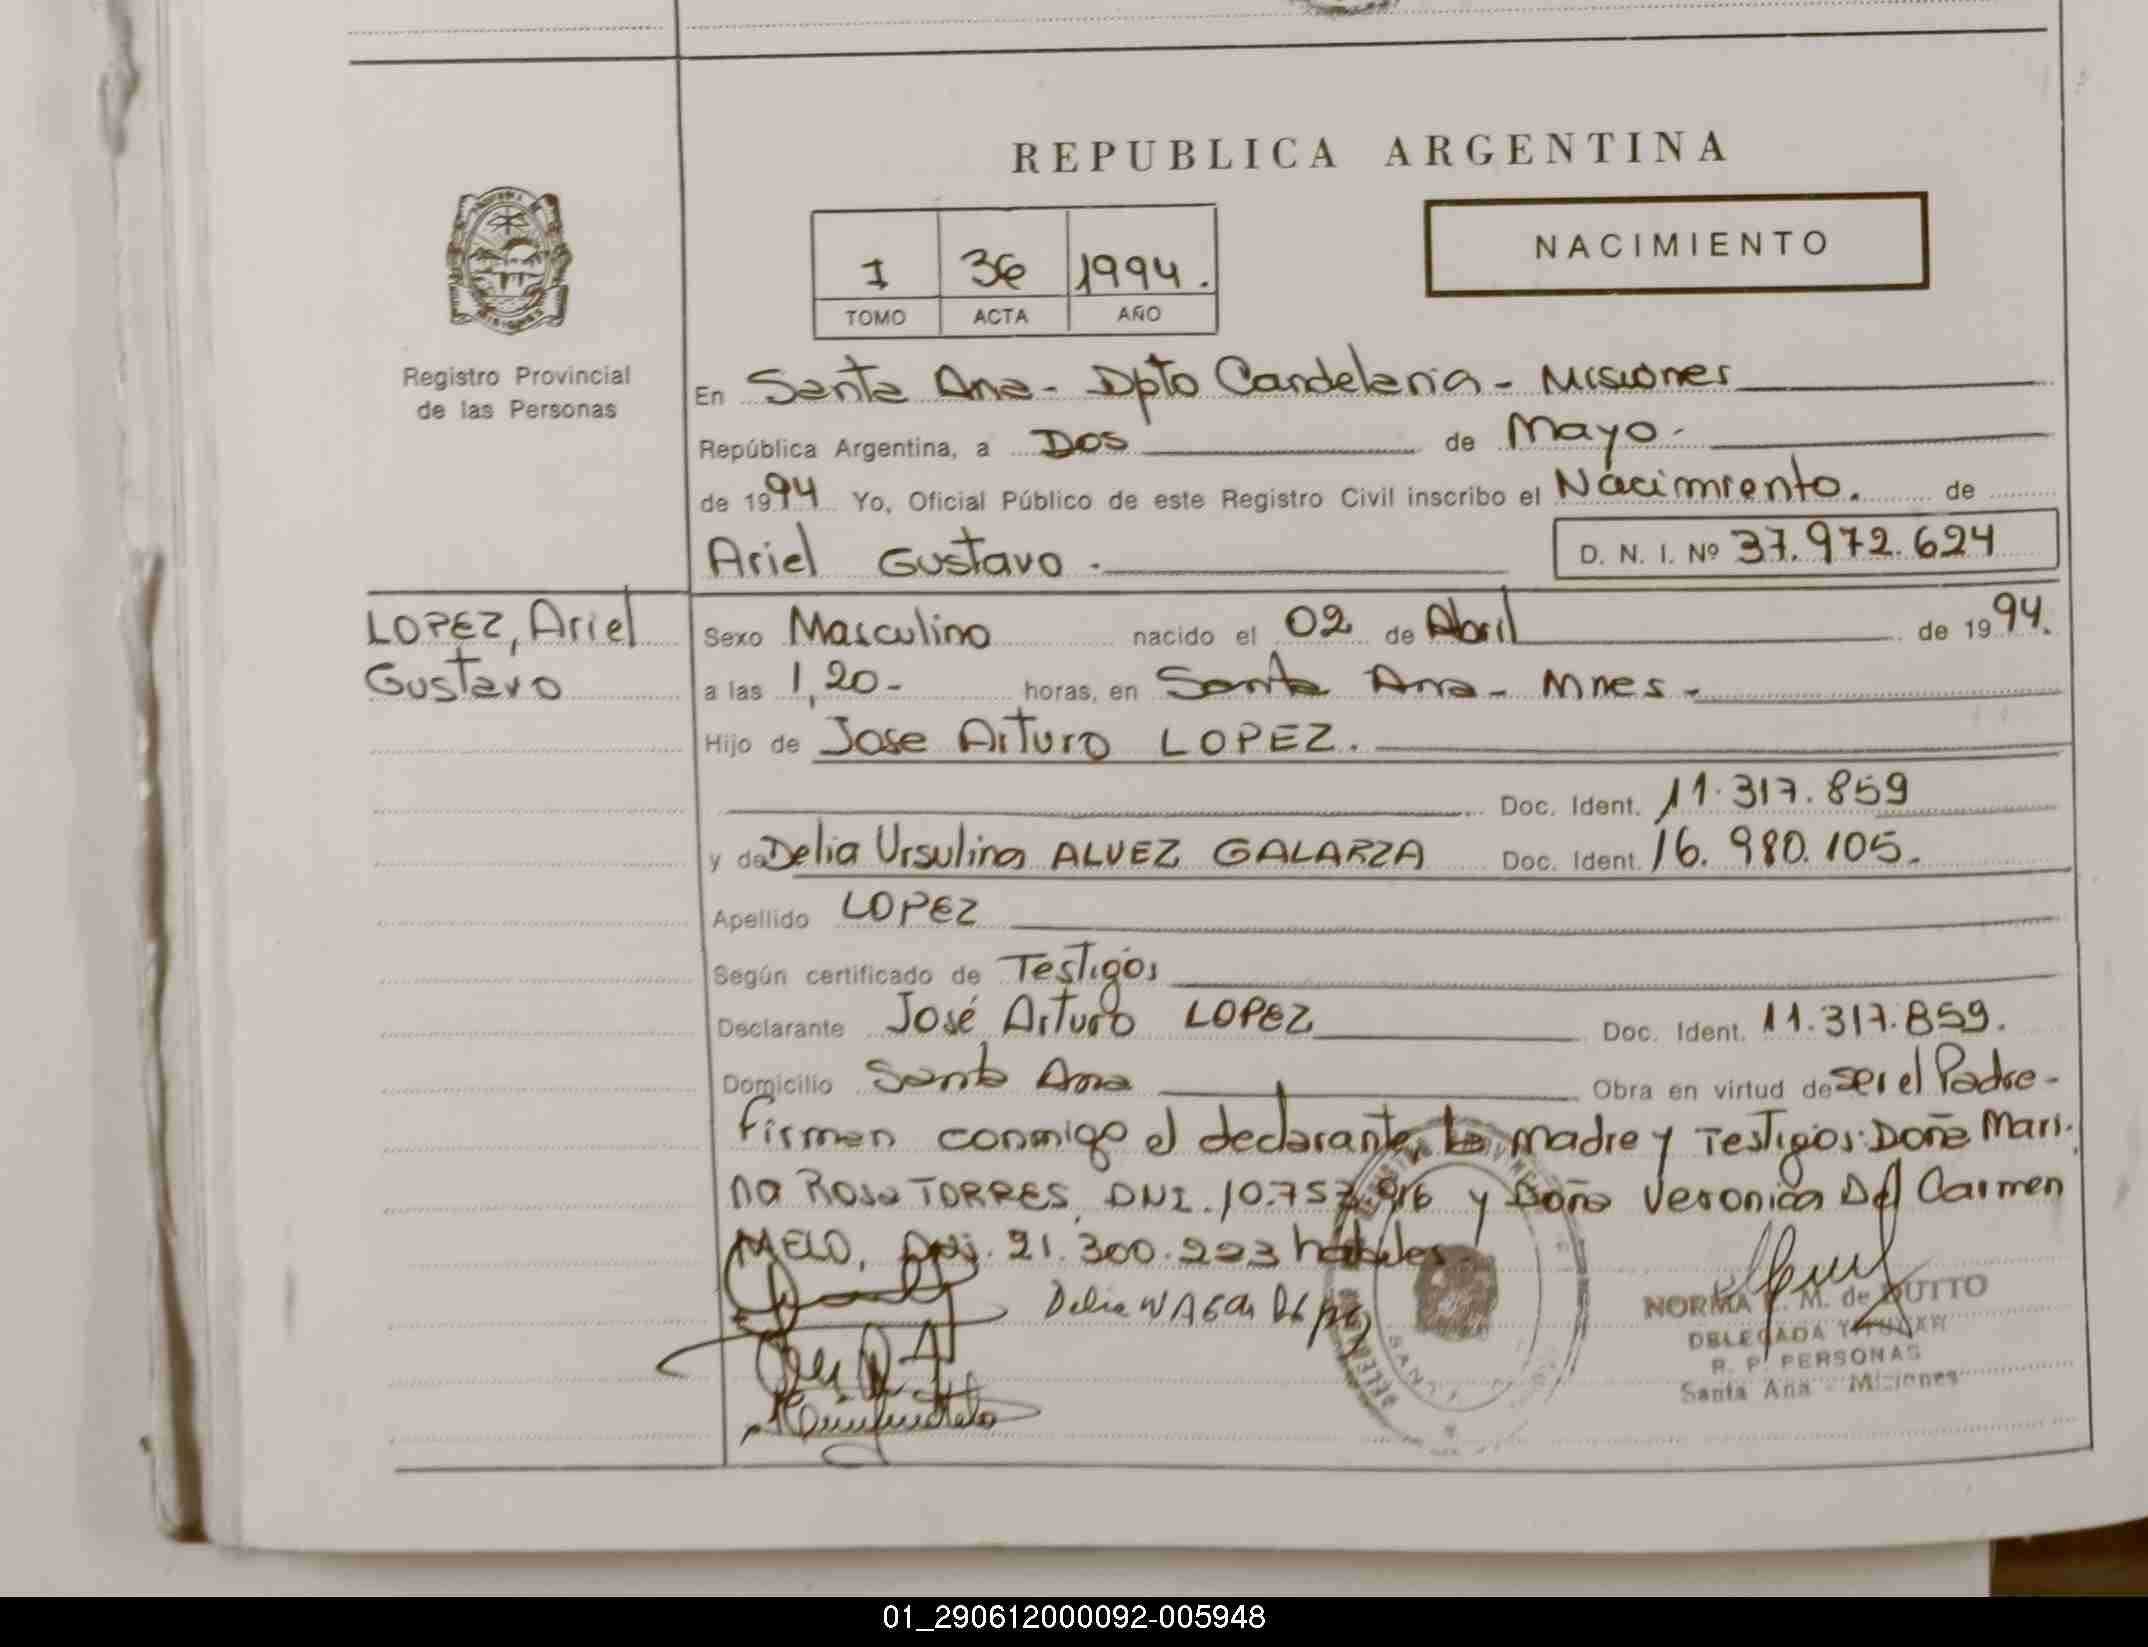 REPUBLICA ARGENTINA
NACIMIENTO
1 36 1994.
TOMO ACTA AÑO
MISIONES
Registro Provincial
de las Personas
En Santa Ana - Dpto Candelaria - Misiones
República Argentina, a Dos de Mayo -
de 1994 Yo, Oficial Público de este Registro Civil inscribo el Nacimiento. de
Ariel Gustavo. D. N. I. Nº 37.972.624
LOPEZ, Ariel
Gustavo
Sexo Masculino nacido el 02 de Abril de 1994.
a las 1,20 - horas, en Santa Ana - Mnes -
Hijo de Jose Arturo LOPEZ.
Doc. Ident. 11.317.859
y de Delia Ursulina ALVEZ GALARZA Doc. Ident. 16.980.105.
Apellido LOPEZ
Según certificado de Testigos
Declarante José Arturo LOPEZ Doc. Ident. 11.317.859.
Domicilio Santa Ana Obra en virtud de ser el Padre -
Firman conmigo el declarante, la madre y Testigos: Doña Mari-
na Rosa TORRES, DNI. 10.757.916 y Doña Veronica Del Carmen
MELO, DNI. 21.300.223 hábiles.
Delia
NORMA M. de DUTTO
DELEGADA TITULAR
R. P. PERSONAS
Santa Ana - Misiones
01_290612000092-005948